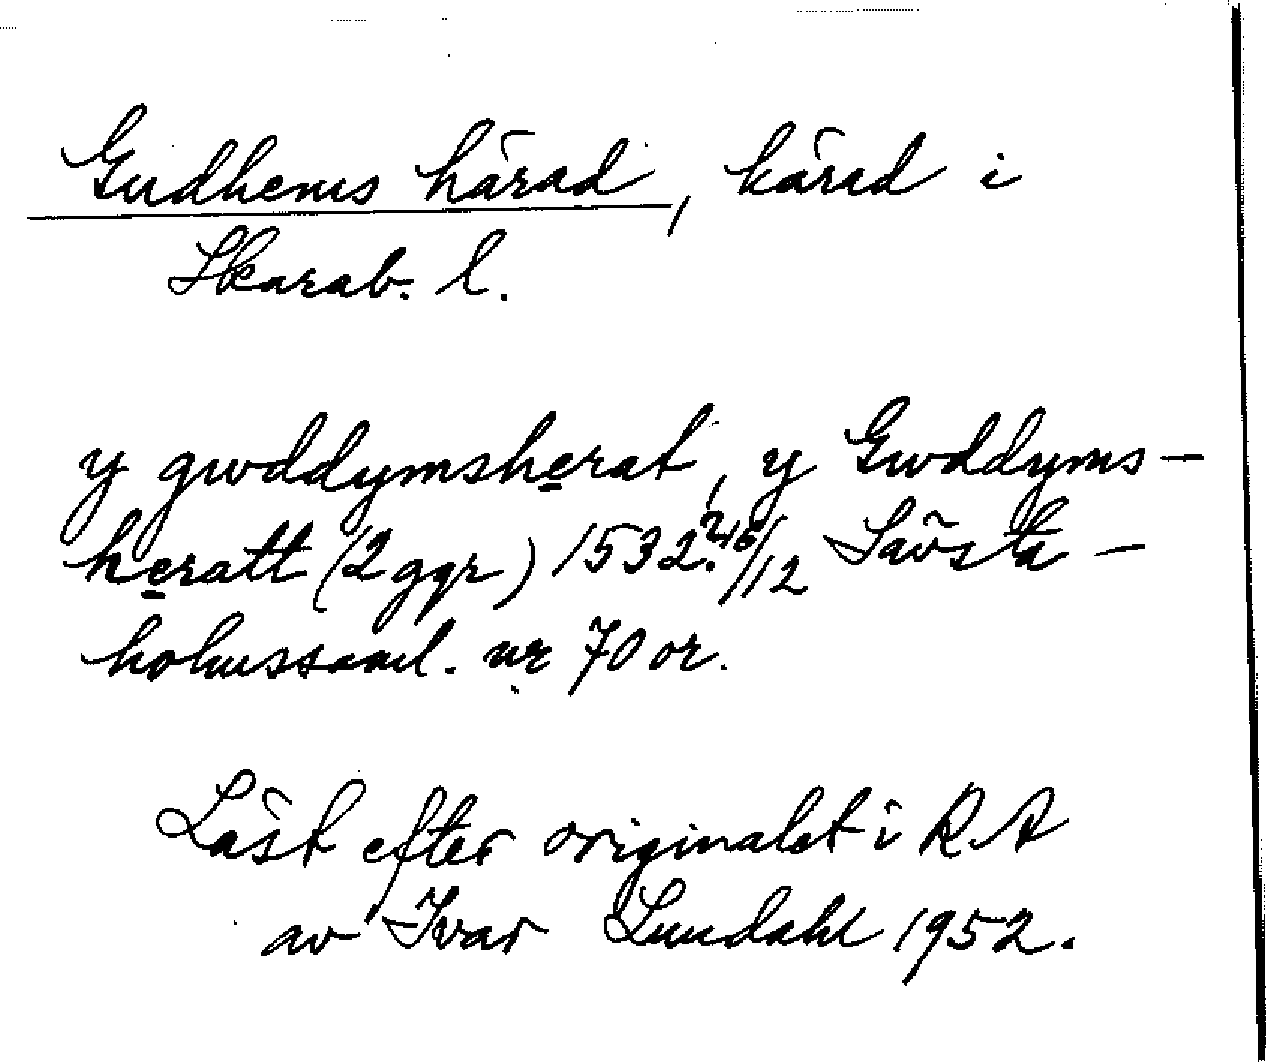 Gudhems härad, härad i
Skarab. l.
y gwddymsherat, y Gwddyms-
heratt (2 ggr) 1532. 26/12 Sävsta-
holmssaml. nr 70 or.
Läst efter originalet i RA
av Ivar Lundahl 1952.